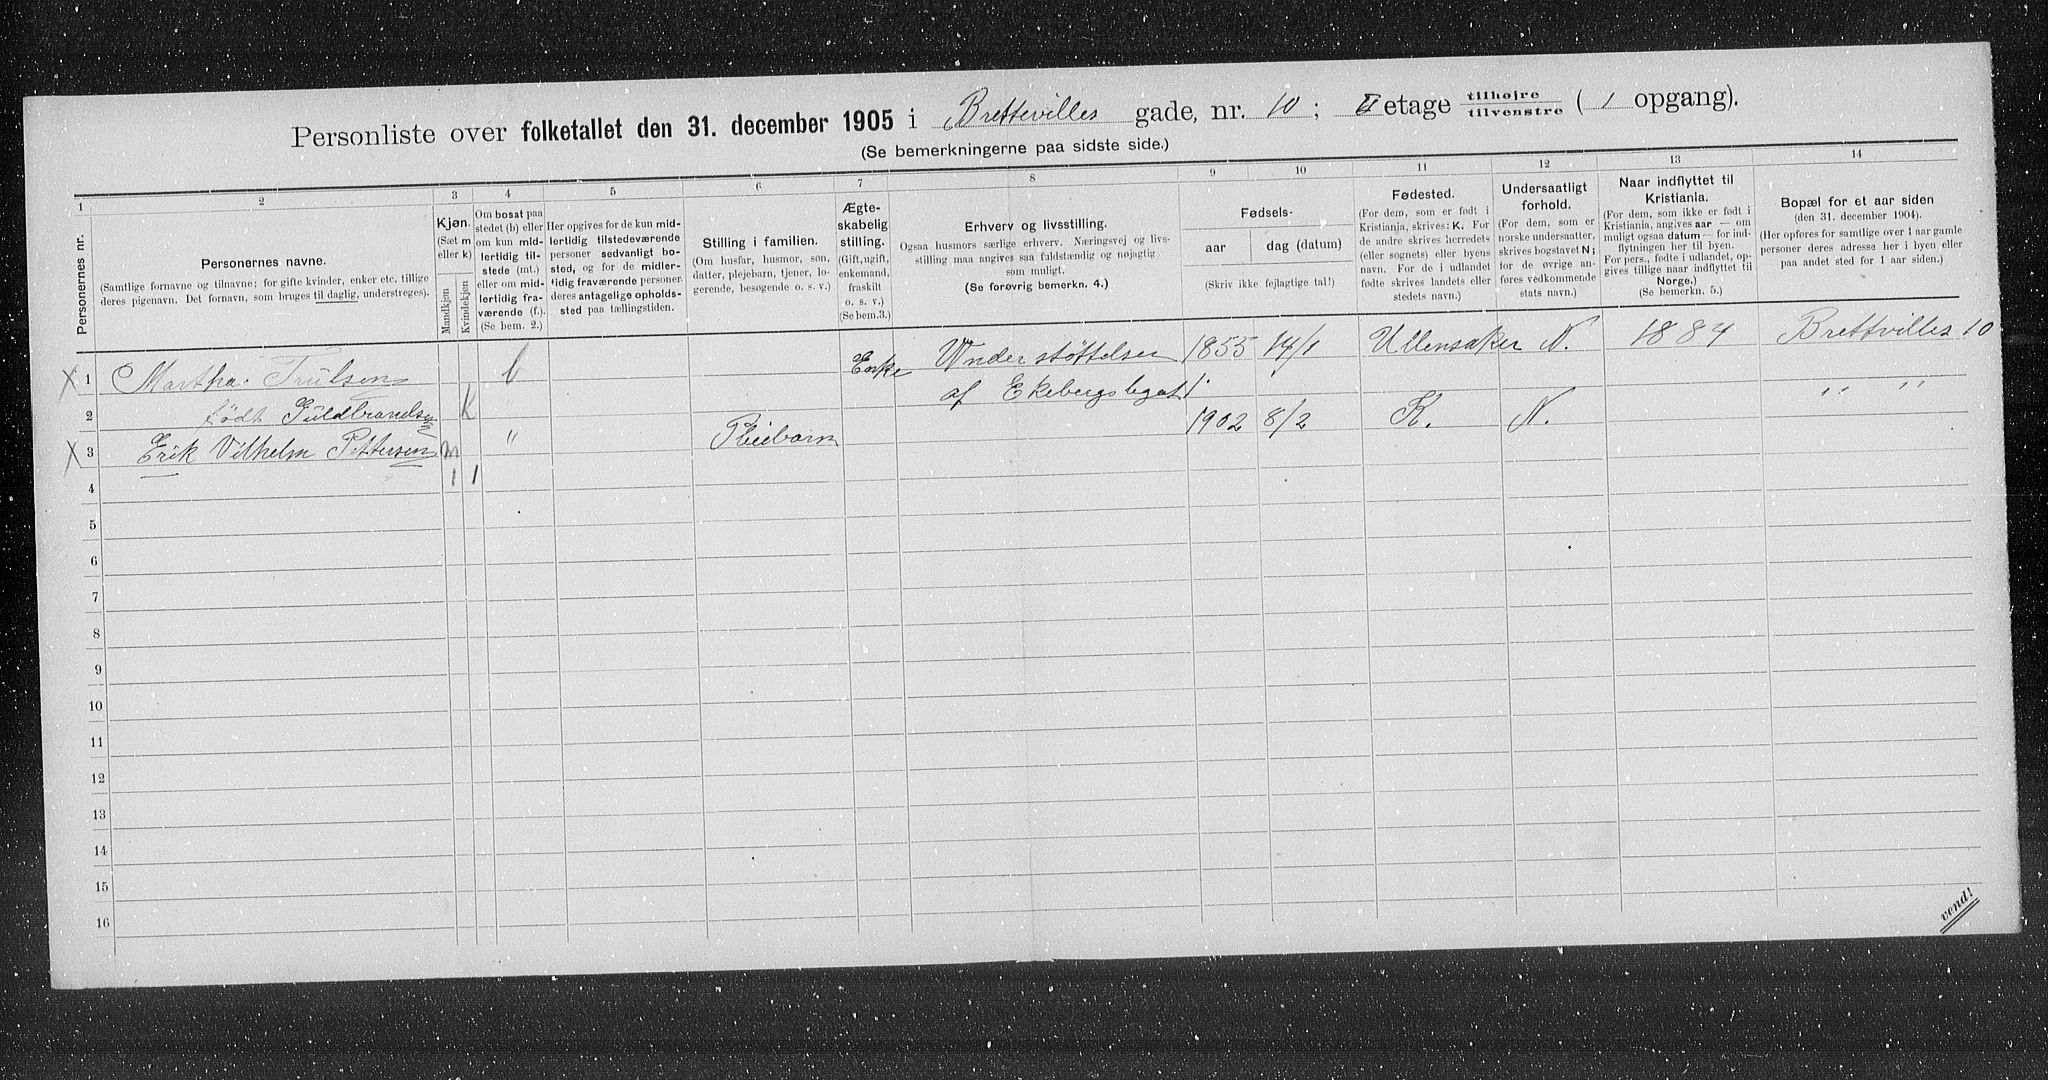 Personliste over folketallet den 31. december 1905 i Brettevilles gade, nr. 10; II etage tilhøjre tilvenstre ( 1 opgang).
(Se bemerkningerne paa sidste side.)
1 2 3 4 5 6 7 8 9 10 11 12 13 14
Personernes nr.
Personernes navne.
(Samtlige fornavne og tilnavne; for gifte kvinder, enker etc. tillige
deres pigenavn. Det fornavn, som bruges til daglig, understreges).
Kjøn.
(Sæt m
eller k)
Mandkjøn
Kvindekjøn
Om bosat paa
stedet (b) eller
om kun mid-
lertidig til-
stede (mt.)
eller om mid-
lertidig fra-
værende (f.).
(Se bem. 2.)
Her opgives for de kun mid-
lertidig tilstedeværende
personer sedvanligt bo-
sted, og for de midler-
tidig fraværende personer
deres antagelige opholds-
sted paa tællingstiden.
Stilling i familien.
(Om husfar, husmor, søn,
datter, plejebarn, tjener, lo-
gerende, besøgende o. s. v.)
Ægte-
skabelig
stilling.
(Gift, ugift,
enkemand,
fraskilt
o. s. v.)
(Se bem.3.)
Erhverv og livsstilling.
Ogsaa husmors særlige erhverv. Næringsvej og livs-
stilling maa angives saa fuldstændig og nøjagtig
som muligt.
(Se forøvrig bemerkn. 4.)
Fødsels-
aar dag (datum)
(Skriv ikke fejlagtige tal!)
Fødested.
(For dem, som er født i
Kristiania, skrives: K. For
de andre skrives herredets
(eller sognets) eller byens
navn. For de i udlandet
fødte skrives landets eller
stedets navn.)
Undersaatligt
forhold.
(For dem, som er
norske undersaatter,
skrives bogstavet N;
for de øvrige an-
føres vedkommende
stats navn.)
Naar indflyttet til
Kristiania.
(For dem, som ikke er født i
Kristiania, angives aar — om
muligt ogsaa datum — for ind-
flytningen her til byen.
For pers., fødte i udlandet, op-
gives tillige naar indflyttet til
Norge.)
(Se bemerkn. 5.)
Bopæl for et aar siden
(den 31. december 1904).
(Her opføres for samtlige over 1 aar gamle
personer deres adresse her i byen eller
paa andet sted for 1 aar siden.)
X 1 Martha. Trulsen b Enke Understøttelse 1855 14/1 Ullensaker N. 1884 Brettvilles 10
2 født Guldbrandsen K af Ekebergs legat
X 3 Erik Vilhelm Pettersen m " Pleiebarn 1902 8/2 K. N. " "
4 1 1
5
6
7
8
9
10
11
12
13
14
15
16
vend!